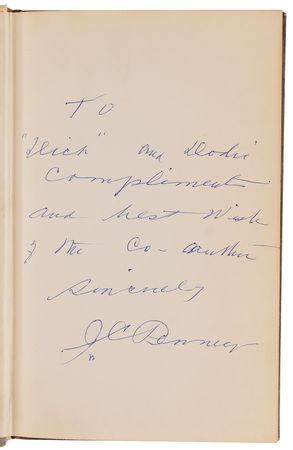 To
and Dodie
Compliment
and best wish
of the Co-author
Sincerely
J C Penney